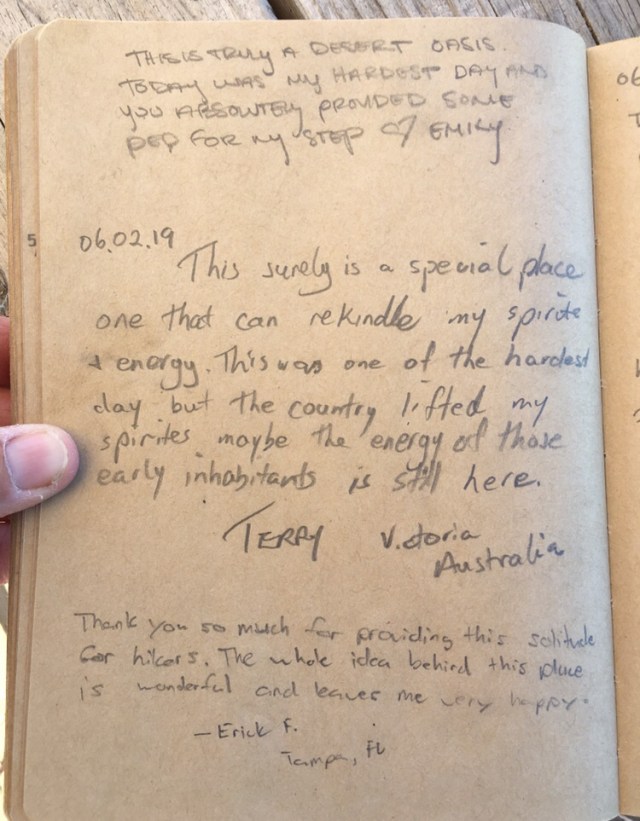 THIS IS TRULY A DESERT OASIS.
TODAY WAS MY HARDEST DAY AND
YOU ABSOLUTELY PROVIDED SOME
PEP FOR MY STEP ♡ EMILY
5
06.02.19
This surely is a special place
one that can rekindle my spirite
+ energy. This was one of the hardest
day but the country lifted my
spirites maybe the energy of those
early inhabitants is still here.
TERRY Victoria
Australia
Thank you so much for providing this solitude
for hikers. The whole idea behind this place
is wonderful and leaves me very happy.
- Erick F.
Tampa, FL
06